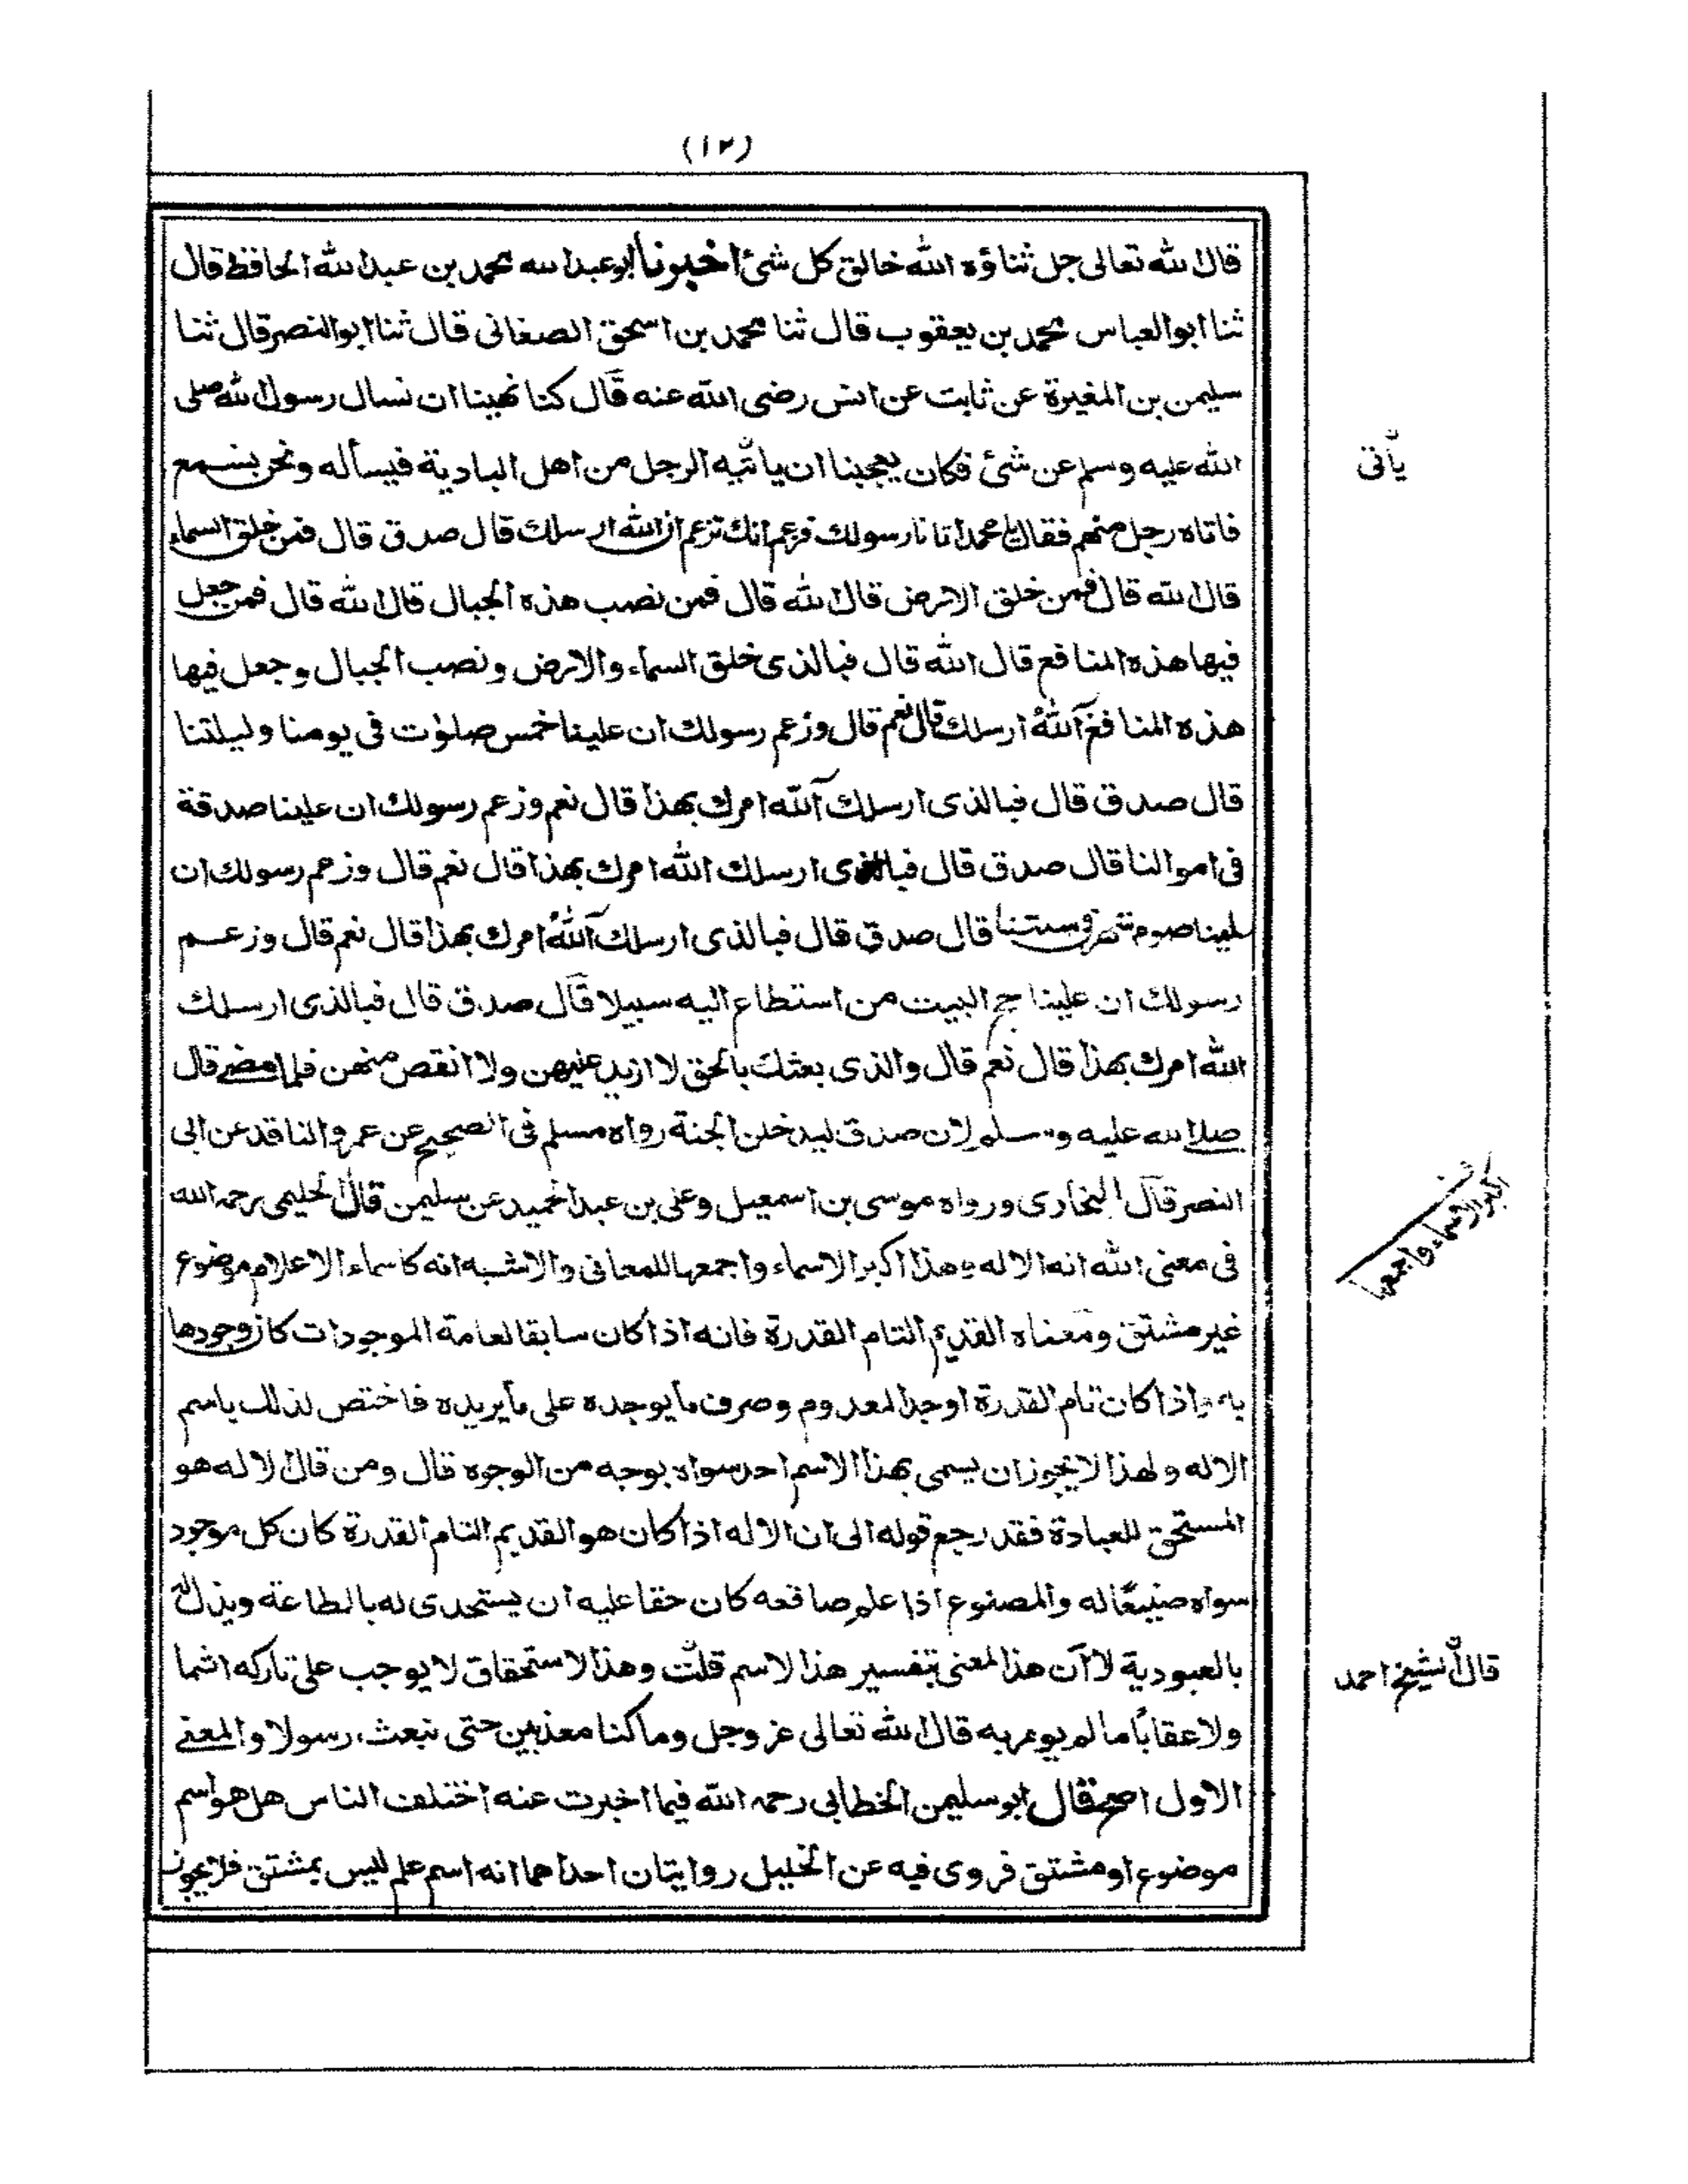 (١٢)
قال الله تعالى جل ثناؤه الله خالق كل شئ اخبرنا ابو عبد الله محمد بن عبد الله الحافظ قال
ثنا ابو العباس محمد بن يعقوب قال ثنا محمد بن اسحق الصغانى قال ثنا ابو النضر قال ثنا
سليمن بن المغيرة عن ثابت عن انس رضى الله عنه قال كنا نهينا ان نسال رسول الله صلى
الله عليه وسلم عن شئ فكان يعجبنا ان ياتيه الرجل من اهل البادية فيسأله ونحن نسمع
يأتى
فاتاه رجل منهم فقال يا محمد اتانا رسولك فزعم انك تزعم ان الله ارسلك قال صدق قال فمن خلق السماء
قال الله قال فمن خلق الارض قال الله قال فمن نصب هذه الجبال قال الله قال فمن جعل
فيها هذه المنافع قال الله قال فبالذى خلق السماء والارض ونصب الجبال وجعل فيها
هذه المنافع آلله ارسلك قال نعم قال وزعم رسولك ان علينا خمس صلوٰت فى يومنا وليلتنا
قال صدق قال فبالذى ارسلك آلله امرك بهذا قال نعم وزعم رسولك ان علينا صدقة
فى اموالنا قال صدق قال فبالذى ارسلك الله امرك بهذا قال نعم قال وزعم رسولك ان
علينا صوم شهر فى سنتنا قال صدق قال فبالذى ارسلك آلله امرك بهذا قال نعم قال وزعم
رسولك ان علينا حج البيت من استطاع اليه سبيلا قال صدق قال فبالذى ارسلك
الله امرك بهذا قال نعم قال والذى بعثك بالحق لا ازيد عليهن ولا انقص منهن فلما مضى قال
صلى الله عليه وسلم لان صدق ليدخلن الجنة رواه مسلم فى الصحيح عن عمرو الناقد عن ابى
النضر قال البخارى ورواه موسى بن اسمعيل وعلى بن عبد الحميد عن سليمن قال الحليمى رحمه الله
فى معنى الله انه الاله وهذا اكبر الاسماء واجمعها للمعانى والاشبه انه كاسماء الاعلام موضوع
اكبر الاسماء واجمعها
غير مشتق ومعناه القديم التام القدرة فانه اذا كان سابقا لعامة الموجودات كان وجودها
به واذا كان تام القدرة اوجد المعدوم وصرف ما يوجده على ما يريده فاختص لذلك باسم
الاله ولهذا لا يجوز ان يسمى بهذا الاسم احد سواه بوجه من الوجوه قال ومن قال الاله هو
المستحق للعبادة فقد رجع قوله الى ان الاله اذا كان هو القديم التام القدرة كان كل موجود
سواه صنيعًا له والمصنوع اذا علم صانعه كان حقا عليه ان يستخدى له بالطاعة ويذل له
بالعبودية لا ان هذا المعنى بتفسير هذا الاسم قلت وهذا الاستحقاق لا يوجب على تاركه اثما
قال الشيخ احمد
ولا عقابًا ما لم يومر به قال الله تعالى عز وجل وما كنا معذبين حتى نبعث رسولا والمعنى
الاول اصح قال ابو سليمن الخطابى رحمه الله فيما اخبرت عنه اختلف الناس هل هو اسم
موضوع او مشتق فروى فيه عن الخليل روايتان احداهما انه اسم علم ليس بمشتق فلا يجوز